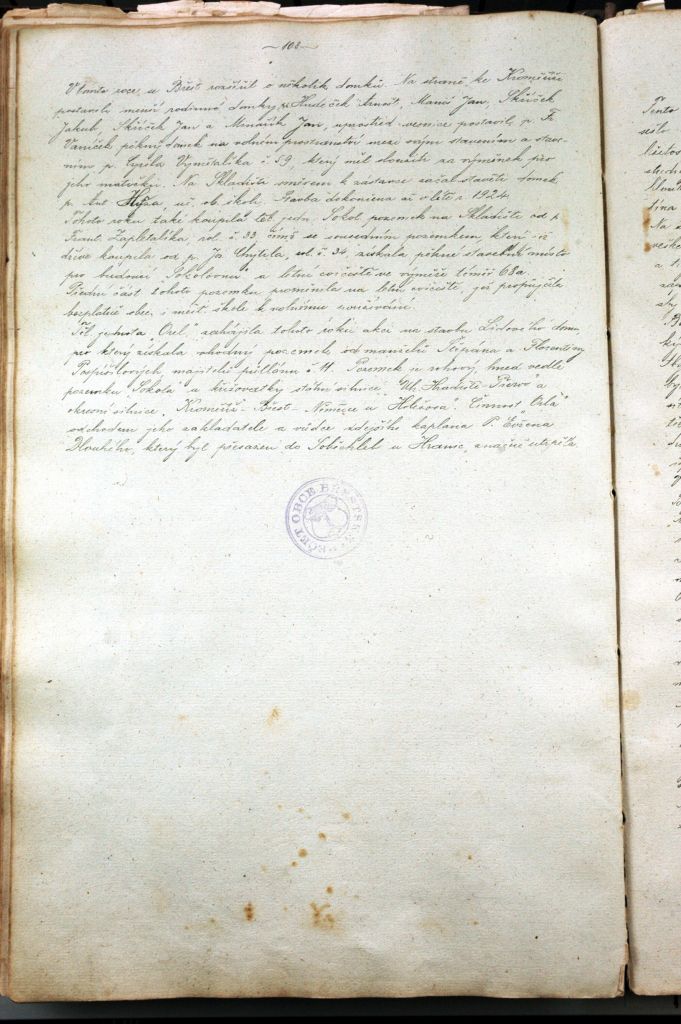 — 108 —
V tomto roce se Břest rozšířil o několik domků. Na straně ke Kroměříži
postavili menší rodinné domky p. Hudeček Arnošt, Maňš Jan, Skřiček
Jakub, Skřiček Jan a Minařík Jan, uprostřed vesnice postavil p. Fr.
Vaníček pěkný domek na volném prostranství mezi svým stavením a stave-
ním p. Cyrila Vymětalíka č. 59, který měl sloužiti za výměnek pro
jeho matičku. Na Skladišti směrem k zástavce začal stavěti domek
p. Ant. Hýža uč. ob. škol. Stavba dokončena až v létě r. 1924.
Tohoto roku také koupila těl. jedn. Sokol pozemek na Skladišti od p.
Frant. Zapletalíka, rol. č. 33, čímž se sousedním pozemkem, který již
dříve koupila od p. Jos. Chytila, rol. č. 34, získala pěkné stavební místo
pro budoucí „Sokolovnu" a letní cvičiště ve výměře téměř 68 a.
Přední část tohoto pozemku proměnila na letní cvičiště, jež propůjčila
bezplatně obec. i měšť. škole k volnému používání.
Těl. jednota „Orel" zahájila tohoto roku akci na stavbu Lidového domu,
pro který získala vhodný pozemek od manželů Štěpána a Florentiny
Pospíšilových, majitelů půllánu č. 11. Pozemek je rohový, hned vedle
pozemku „Sokola" u křižovatky státní silnice „Uh. Hradiště – Přerov" a
okresní silnice „Kroměříž – Břest – Němčice a Holešova". Činnost „Orla"
odchodem jeho zakladatele a vůdce zdejšího kaplana P. Evžena
Dlouhého, který byl přesazen do Soběchleb u Hranic, značně utrpěla.
OBCE BŘESTSKÉ